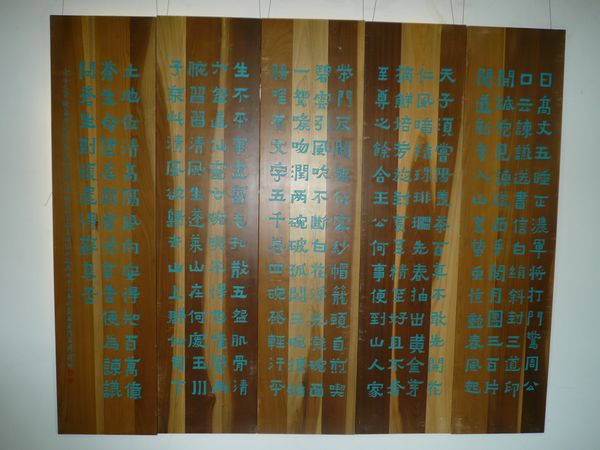 日高丈五睡正濃軍將打門驚周公
口云諫議送書信白絹斜封三道印
開緘宛見諫議面手閱月團三百片
聞道新年入山裏蟄蟲驚動春風起
天子須嘗陽羨茶百草不敢先開花
仁風暗結珠琲瓃先春抽出黃金芽
摘鮮焙芳旋封裹至精至好且不奢
至尊之餘合王公何事便到山人家
柴門反關無俗客紗帽籠頭自煎喫
碧雲引風吹不斷白花浮光凝碗面
一碗喉吻潤兩碗破孤悶三碗搜枯
腸唯有文字五千卷四碗發輕汗平
生不平事盡向毛孔散五碗肌骨清
六碗通仙靈七碗喫不得也唯覺兩
腋習習清風生蓬萊山在何處玉川
子乘此清風欲歸去山上群仙司下
土地位清高隔風雨安得知百萬億
蒼生命墮在巔崖受辛苦便為諫議
問蒼生到頭還得蘇息否